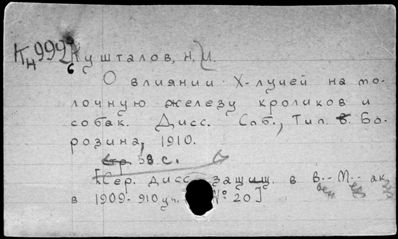 Кн 992
Кушталов, Н. И.
О влиянии X-лучей на мо-
лочную железу кроликов и
собак. Дисс. Спб., Тип. Бо-
розина, 1910.
53 с.
[Сер. дисс. защищ. в В.-М. ак.
в 1909-910 уч. № 20]